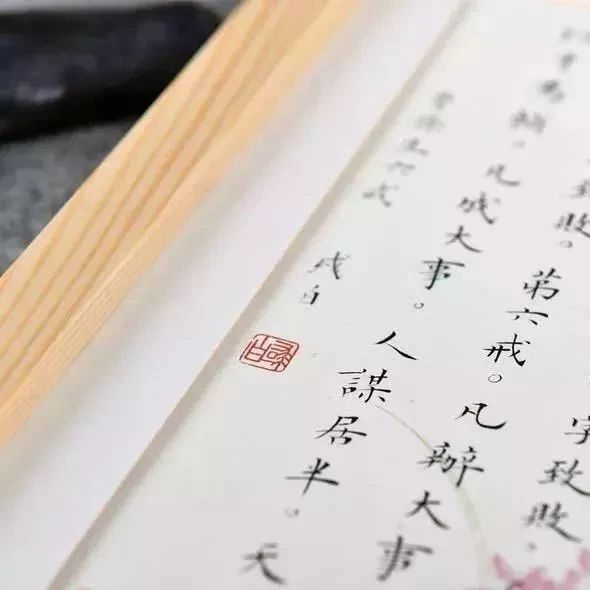 字致敗。
致敗。苐六戒。凡辦大事
為輔。凡成大事。人謀居半。天
六戒